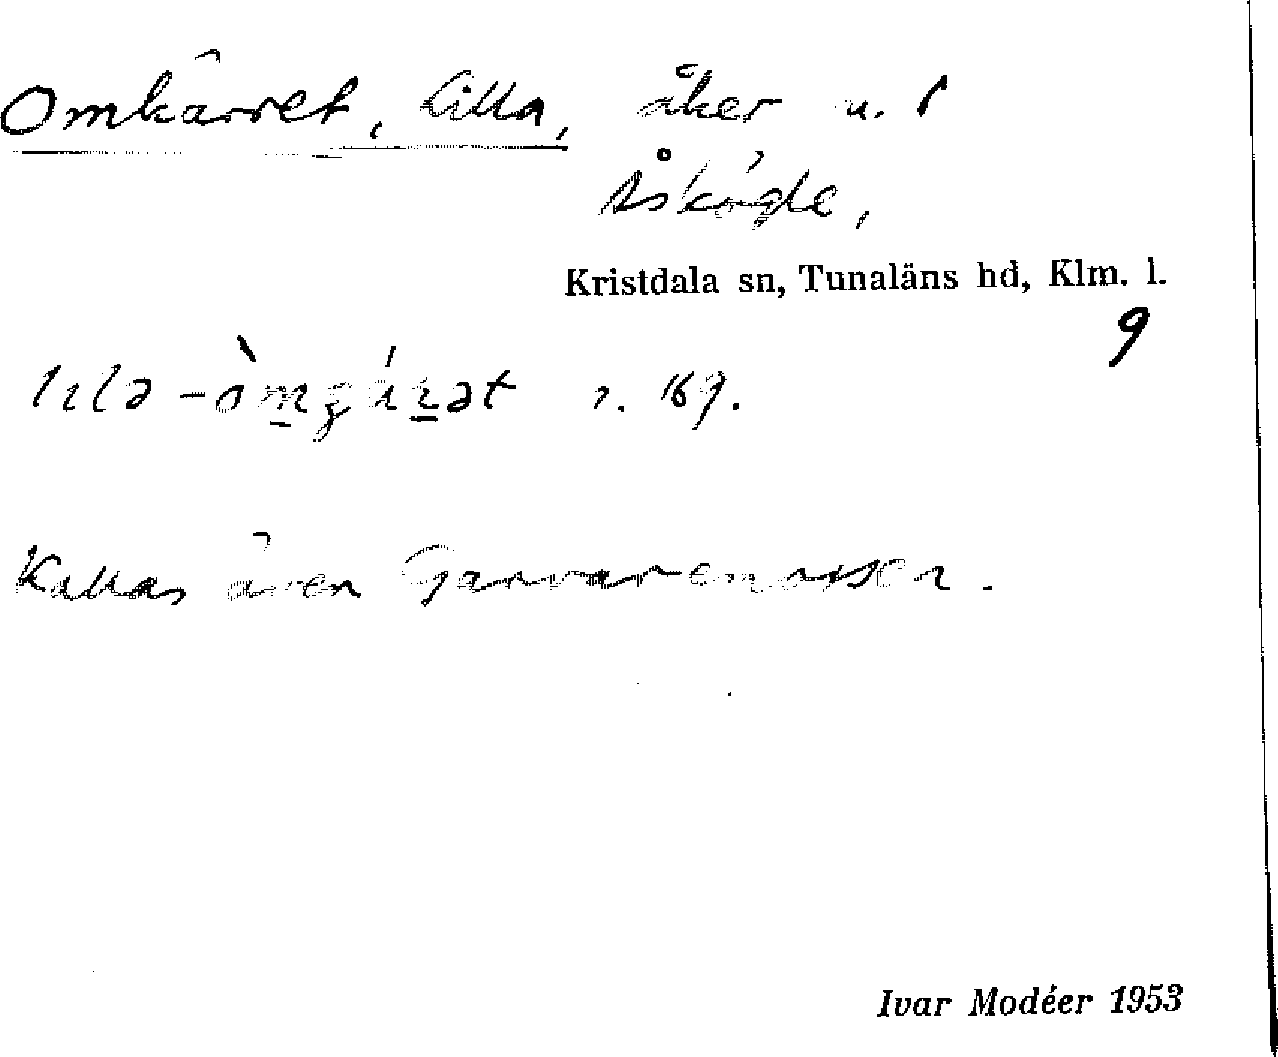 Omkärret, Lilla, åker u. 1
Åskögle,
Kristdala sn, Tunaläns hd, Klm. l.
9
r. 169.
Kallas även Garvaremossen.
Ivar Modéer 1953